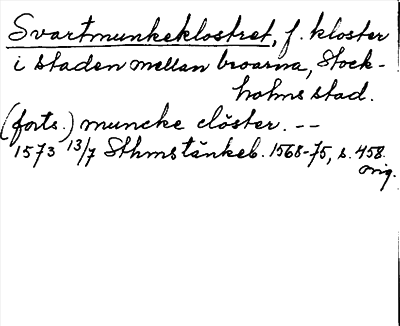 Svartmunkeklostret, f. kloster
i staden mellan broarna, Stock-
holms stad.
(forts.) muncke clöster. --
1573 13/7 Sthms tänkeb. 1568-75, s. 458.
orig.